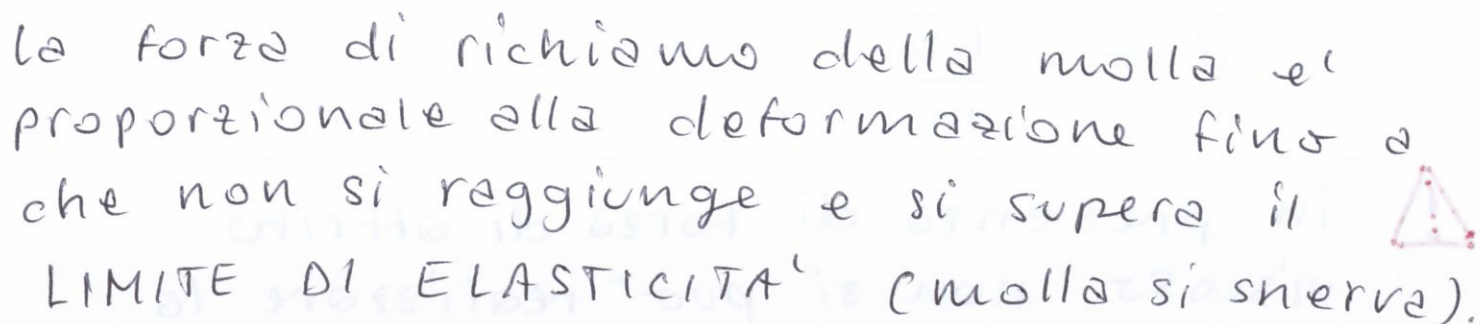 la forza di richiamo della molla e'
proporzionale alla deformazione fino a
che non si raggiunge e si supera il
LIMITE DI ELASTICITA' (molla si snerva).